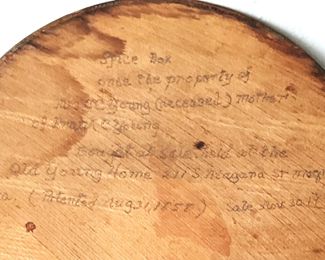 Spice Box
once the property of
Mrs S C Young (deceased) mother
of C Young
Bought at sale held at the
Old Young Home 211 S Niagara St
(Patented Aug 31, 1858) Sale